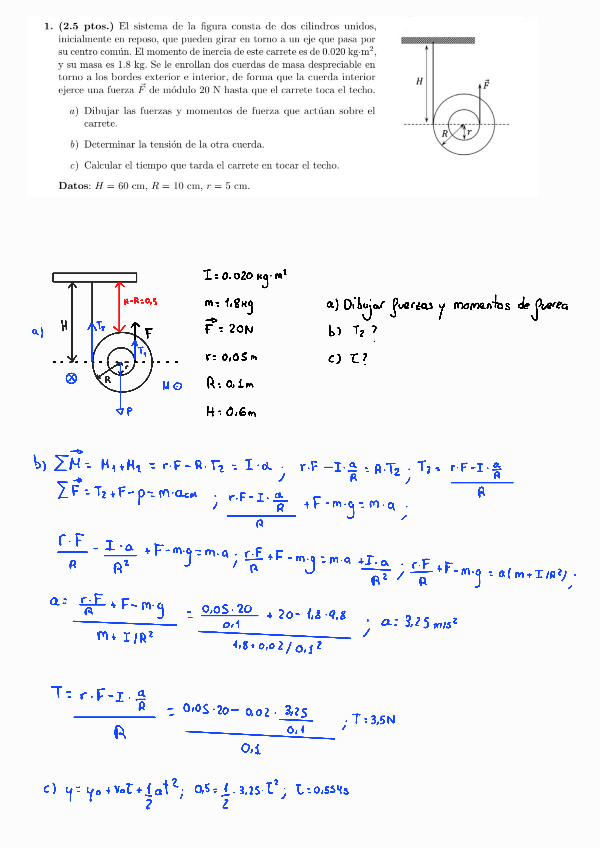 1. (2.5 ptos.) El sistema de la figura consta de dos cilindros unidos,
inicialmente en reposo, que pueden girar en torno a un eje que pasa por
su centro común. El momento de inercia de este carrete es de 0.020 kg·m²,
y su masa es 1.8 kg. Se le enrollan dos cuerdas de masa despreciable en
torno a los bordes exterior e interior, de forma que la cuerda interior
ejerce una fuerza F⃗ de módulo 20 N hasta que el carrete toca el techo.
a) Dibujar las fuerzas y momentos de fuerza que actúan sobre el
carrete.
b) Determinar la tensión de la otra cuerda.
c) Calcular el tiempo que tarda el carrete en tocar el techo.
Datos: H = 60 cm, R = 10 cm, r = 5 cm.
H
F⃗
R
r
a)
H
H-R=0,5
T₂
F
T₁
R
r
P
M
I = 0.020 kg·m²
m = 1,8 kg
F⃗ = 20N
r = 0,05 m
R = 0,1 m
H = 0,6 m
a) Dibujar fuerzas y momentos de fuerza
b) T₂ ?
c) t ?
b) ΣM⃗ = M₁+M₂ = r·F-R·T₂ = I·α ; r·F-I·a/R = R·T₂ ; T₂ = (r·F-I·a/R)/R
ΣF⃗ = T₂+F-p = m·aCM ; (r·F-I·a/R)/R +F-m·g = m·a ;
r·F/R - I·a/R² +F-m·g = m·a ; r·F/R +F-m·g = m·a + I·a/R² ; r·F/R +F-m·g = a(m+I/R²) ;
a = (r·F/R +F-m·g)/(m+I/R²) = (0,05·20/0,1 + 20-1,8·9,8)/(1,8+0,02/0,1²) ; a = 3,25 m/s²
T = (r·F-I·a/R)/R = (0,05·20-0,02·3,25/0,1)/0,1 ; T = 3,5N
c) y = y₀+v₀t+1/2 at² ; 0,5 = 1/2·3,25·t² ; t = 0,554s